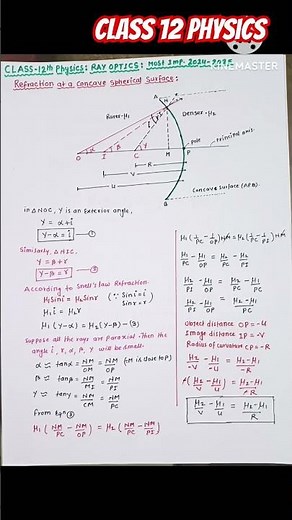 CLASS 12 PHYSICS
KINEMASTER
CLASS-12th Physics: RAY OPTICS: Most Imp. 2024-2025
Refraction at a concave spherical surface:
A
Rarer-μ₁
Denser-μ₂
N
i
r
α
β
γ
O
I
C
M
P
pole
principal axis
R
V
U
B
Concave surface (APB)
in △NOC, γ is an Exterior angle,
γ = α+i
γ-α = i ①
Similarly, △NIC.
γ = β+r
γ-β = r ②
According to Snell's law Refraction.
μ₁Sini = μ₂Sinr (∵ Sini=i Sinr=r)
μ₁i = μ₂r
μ₁(γ-α) = μ₂(γ-β) -③
Suppose all the rays are paraxial. then the
angle i, r, α, β, γ will be small.
α ≈ tanα = NM/OM = NM/OP (M is close to P)
β ≈ tanβ = NM/MI = NM/PI
γ ≈ tanγ = NM/CM = NM/PC
from Eqⁿ③
μ₁(NM/PC - NM/OP) = μ₂(NM/PC - NM/PI)
μ₁(1/PC - 1/OP)NM = μ₂(1/PC - 1/PI)NM
μ₁/PC - μ₁/OP = μ₂/PC - μ₂/PI
μ₂/PI - μ₁/OP = μ₂/PC - μ₁/PC
μ₂/PI - μ₁/OP = μ₂-μ₁/PC
Object distance OP = -U
Image distance IP = -V
Radius of curvature CP = -R
μ₂/-V - μ₁/-U = μ₂-μ₁/-R
-(μ₂/V - μ₁/U) = μ₂-μ₁/-R
μ₂/V - μ₁/U = μ₂-μ₁/R